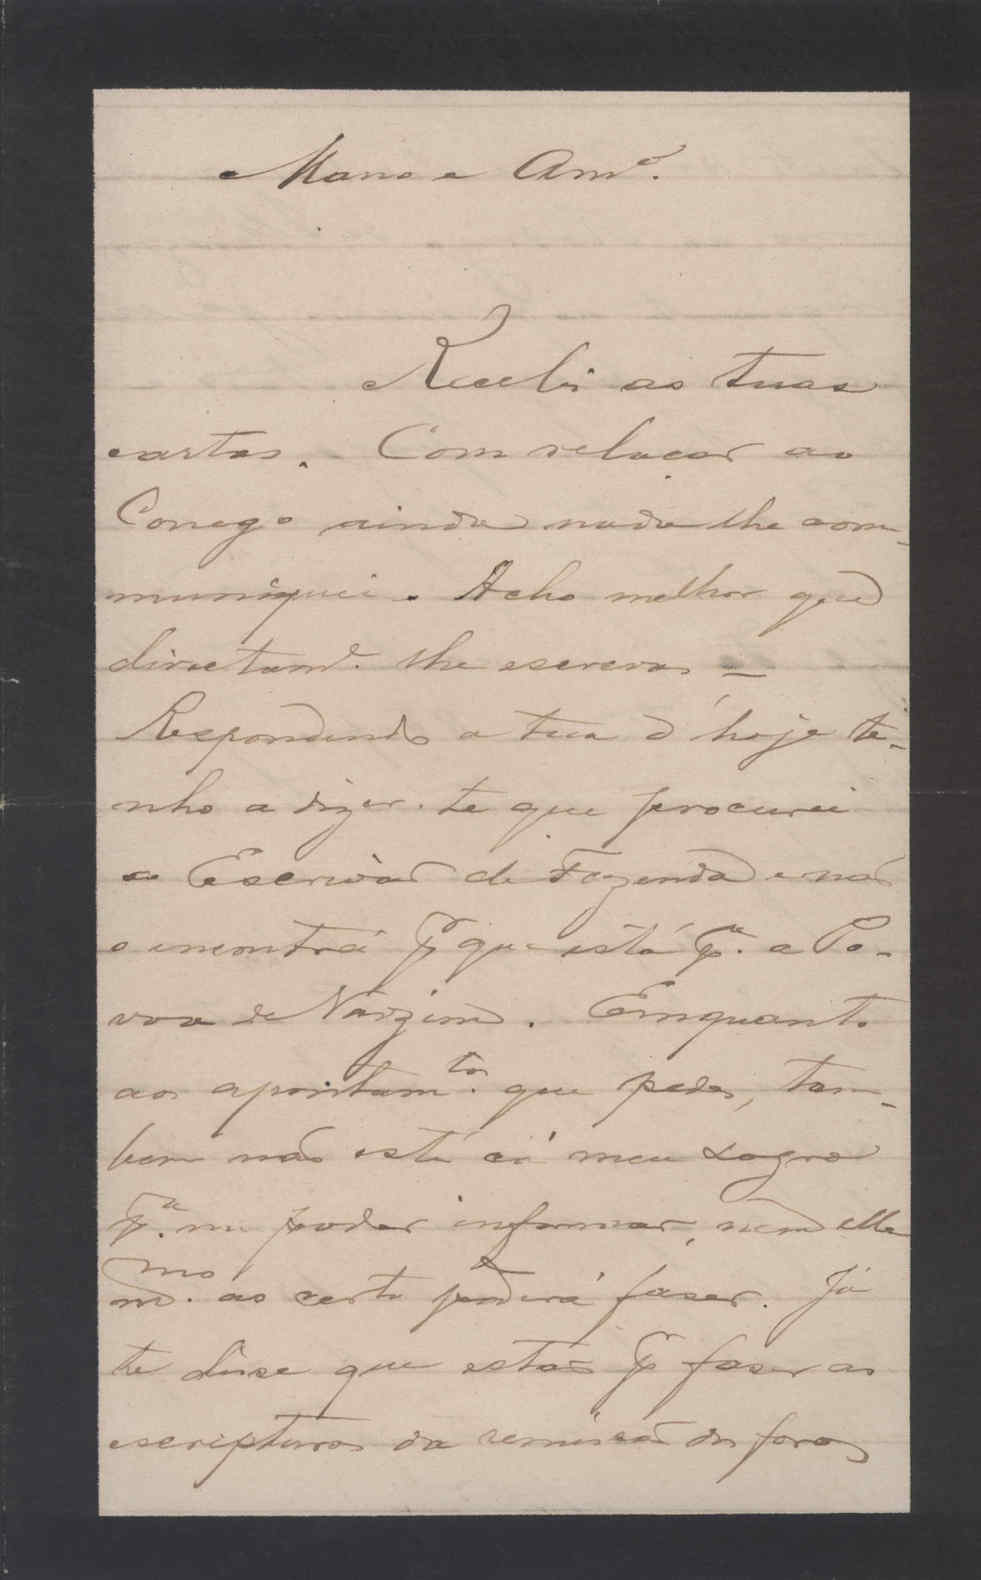 Mano e Amº.
Recebi as tuas
cartas. Com relação ao
Conego ainda nada lhe com-
muniquei. Acho melhor que
directamᵉ. lhe escrevas –
Respondendo a tua d'hoje te-
nho a dizer-te que procurei
o Escrivão de Fazenda e não
o encontrei pʳ que está pᵃ. a Po-
voa de Varzim. Emquanto
aos apontamᵗᵒˢ. que pedes, tam-
bem não está cá meu sogro
pᵃ. me poder informar, nem elle
mᵐᵒ. ao certo poderá faser. Já
te disse que estão pʳ faser as
escripturas da remissão dos foros